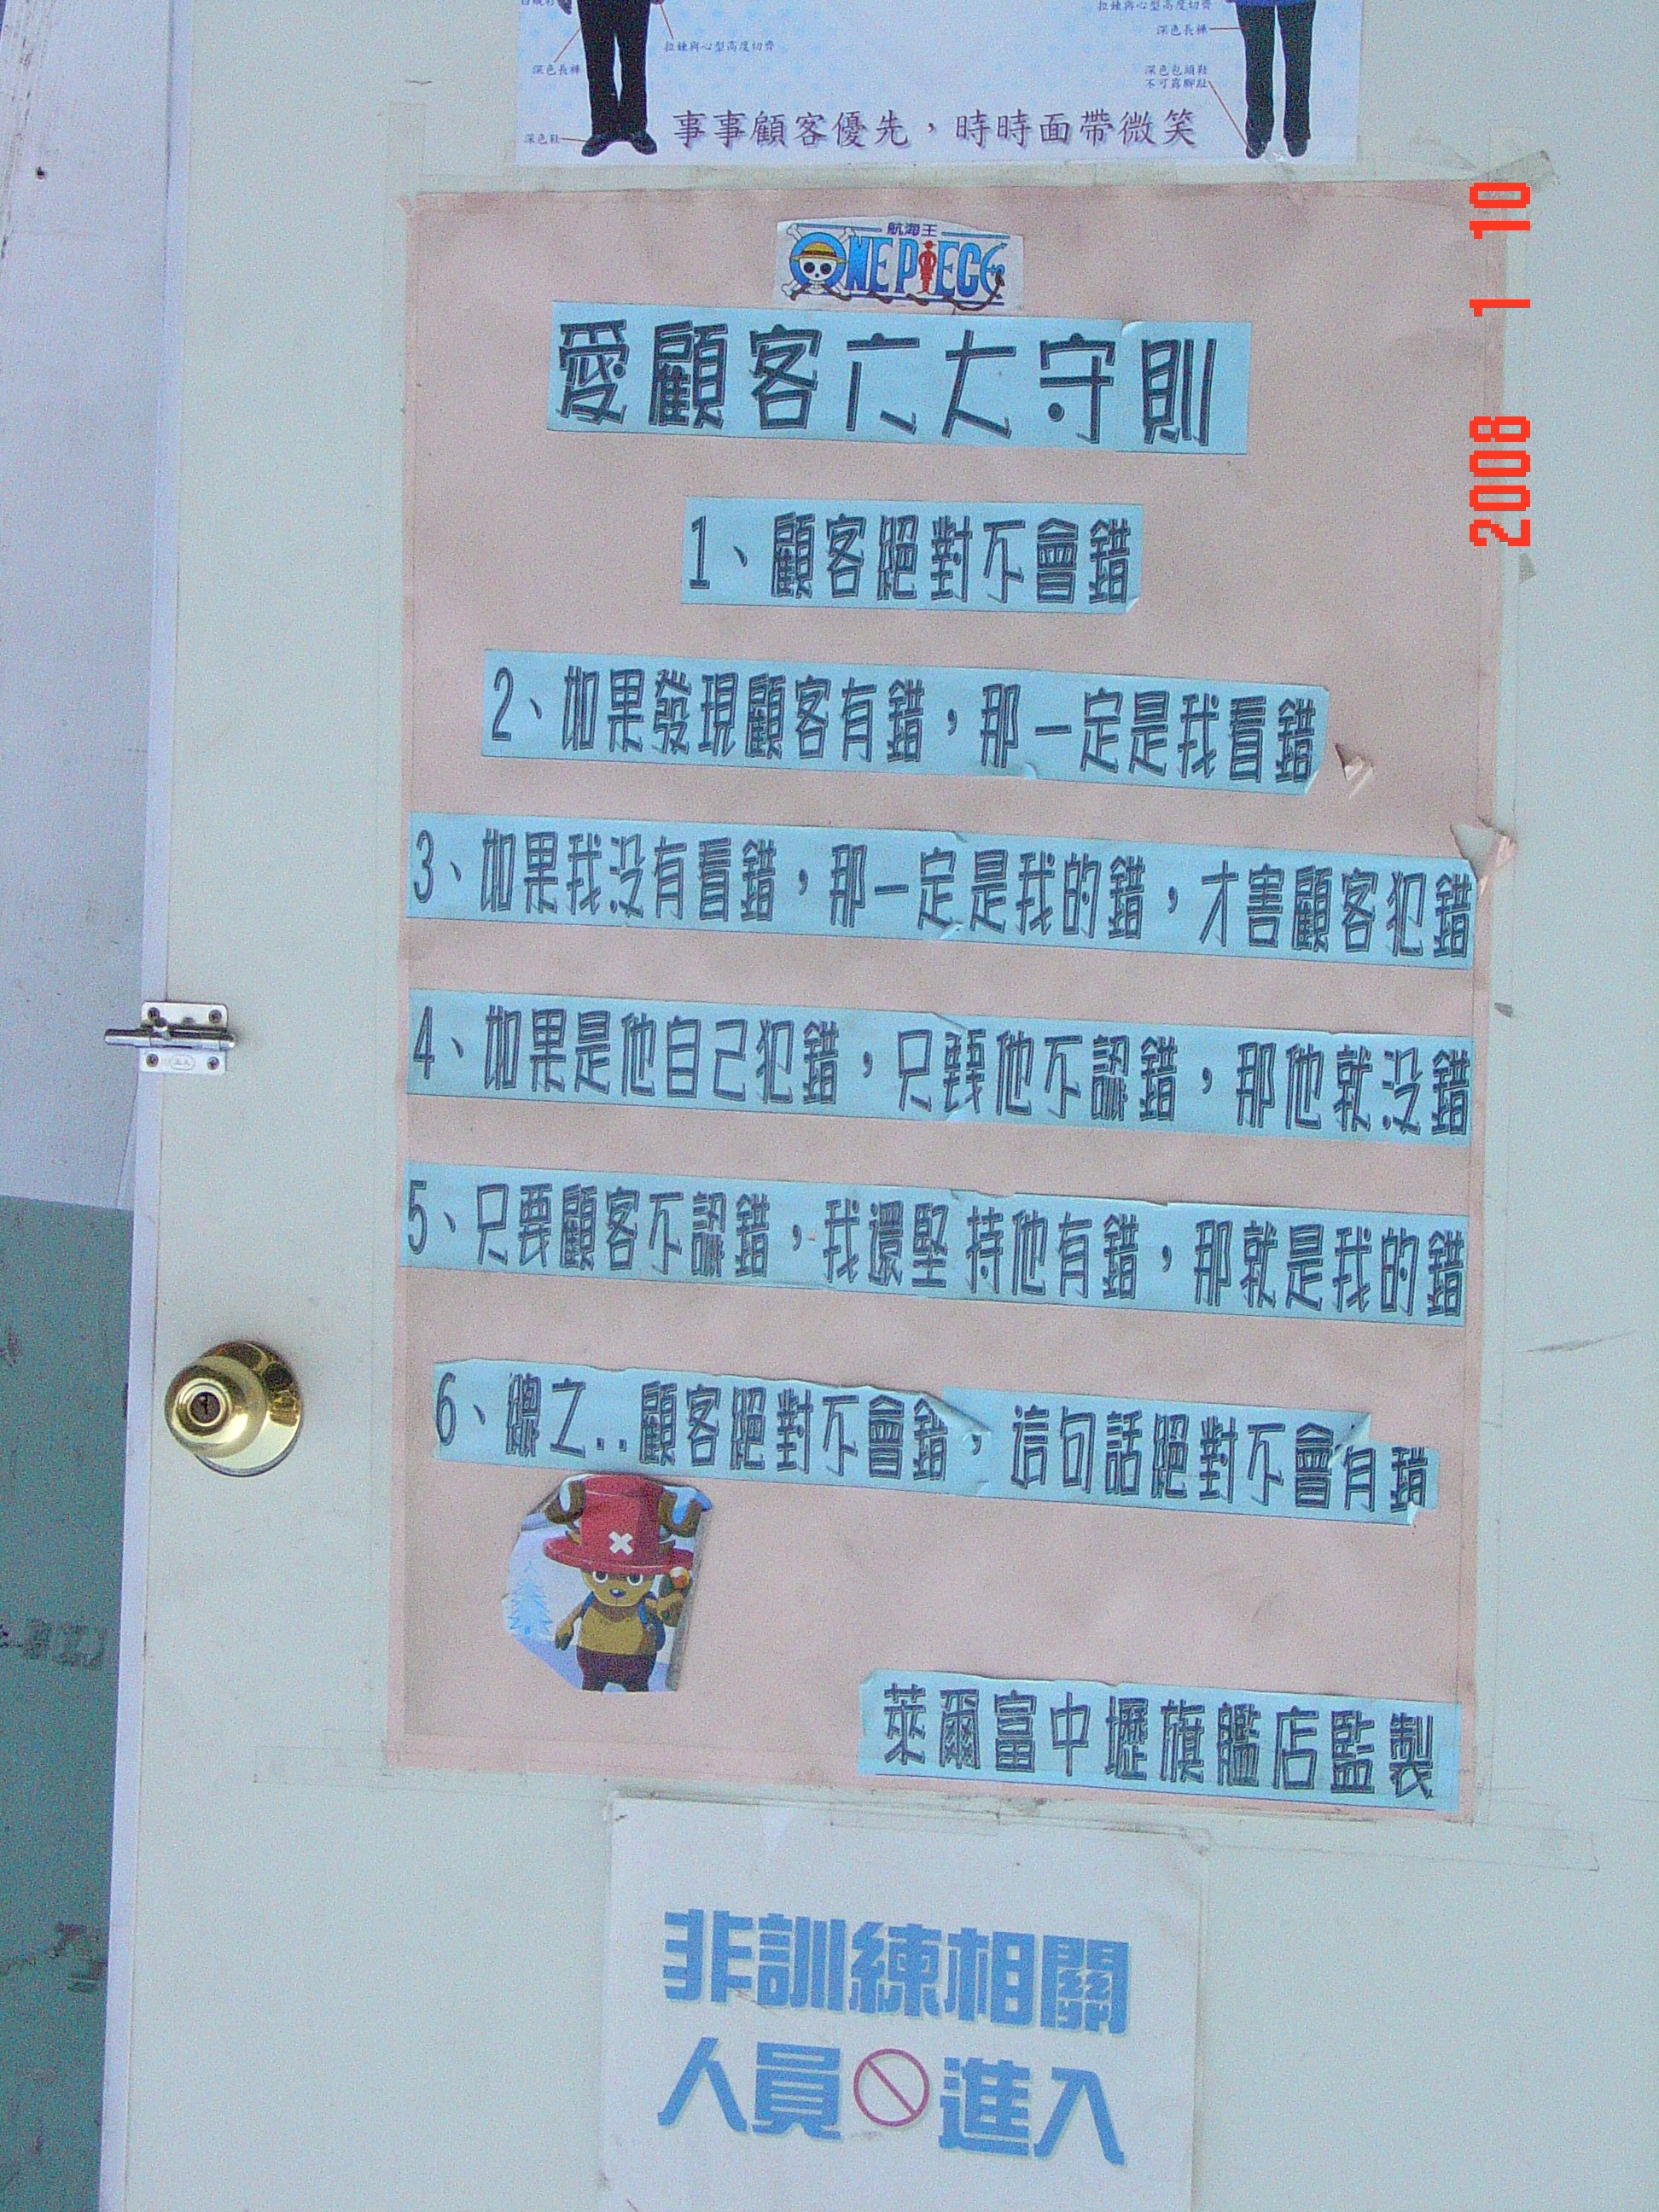 拉鍊與心型高度切齊
深色長褲
深色鞋
拉鍊與心型高度切齊
深色長褲
深色包頭鞋
不可露腳趾
事事顧客優先，時時面帶微笑
航海王
ONE PIECE
愛顧客六大守則
1、顧客絕對不會錯
2、如果發現顧客有錯，那一定是我看錯
3、如果我沒有看錯，那一定是我的錯，才害顧客犯錯
4、如果是他自己犯錯，只要他不認錯，那他就沒錯
5、只要顧客不認錯，我還堅持他有錯，那就是我的錯
6、總之..顧客絕對不會錯，這句話絕對不會有錯
萊爾富中壢旗艦店監製
非訓練相關
人員進入
2008 1 10